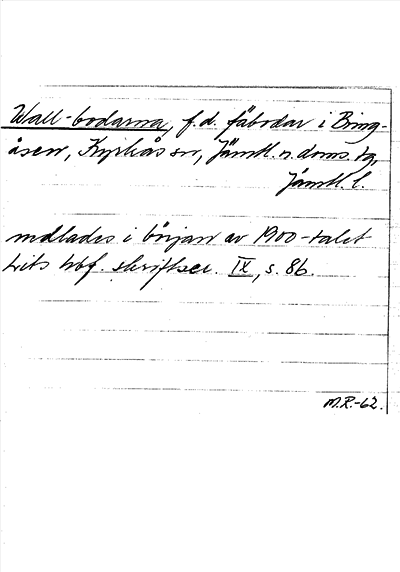 Wall-bodarna, f.d. fäbodar i Bring-
åsen, Kyrkås sn, Jämtl. n. doms. tg,
Jämtl. l.
nedlades i början av 1900-talet
hbf. skriftser. IX, s. 86.
M.R.-62.